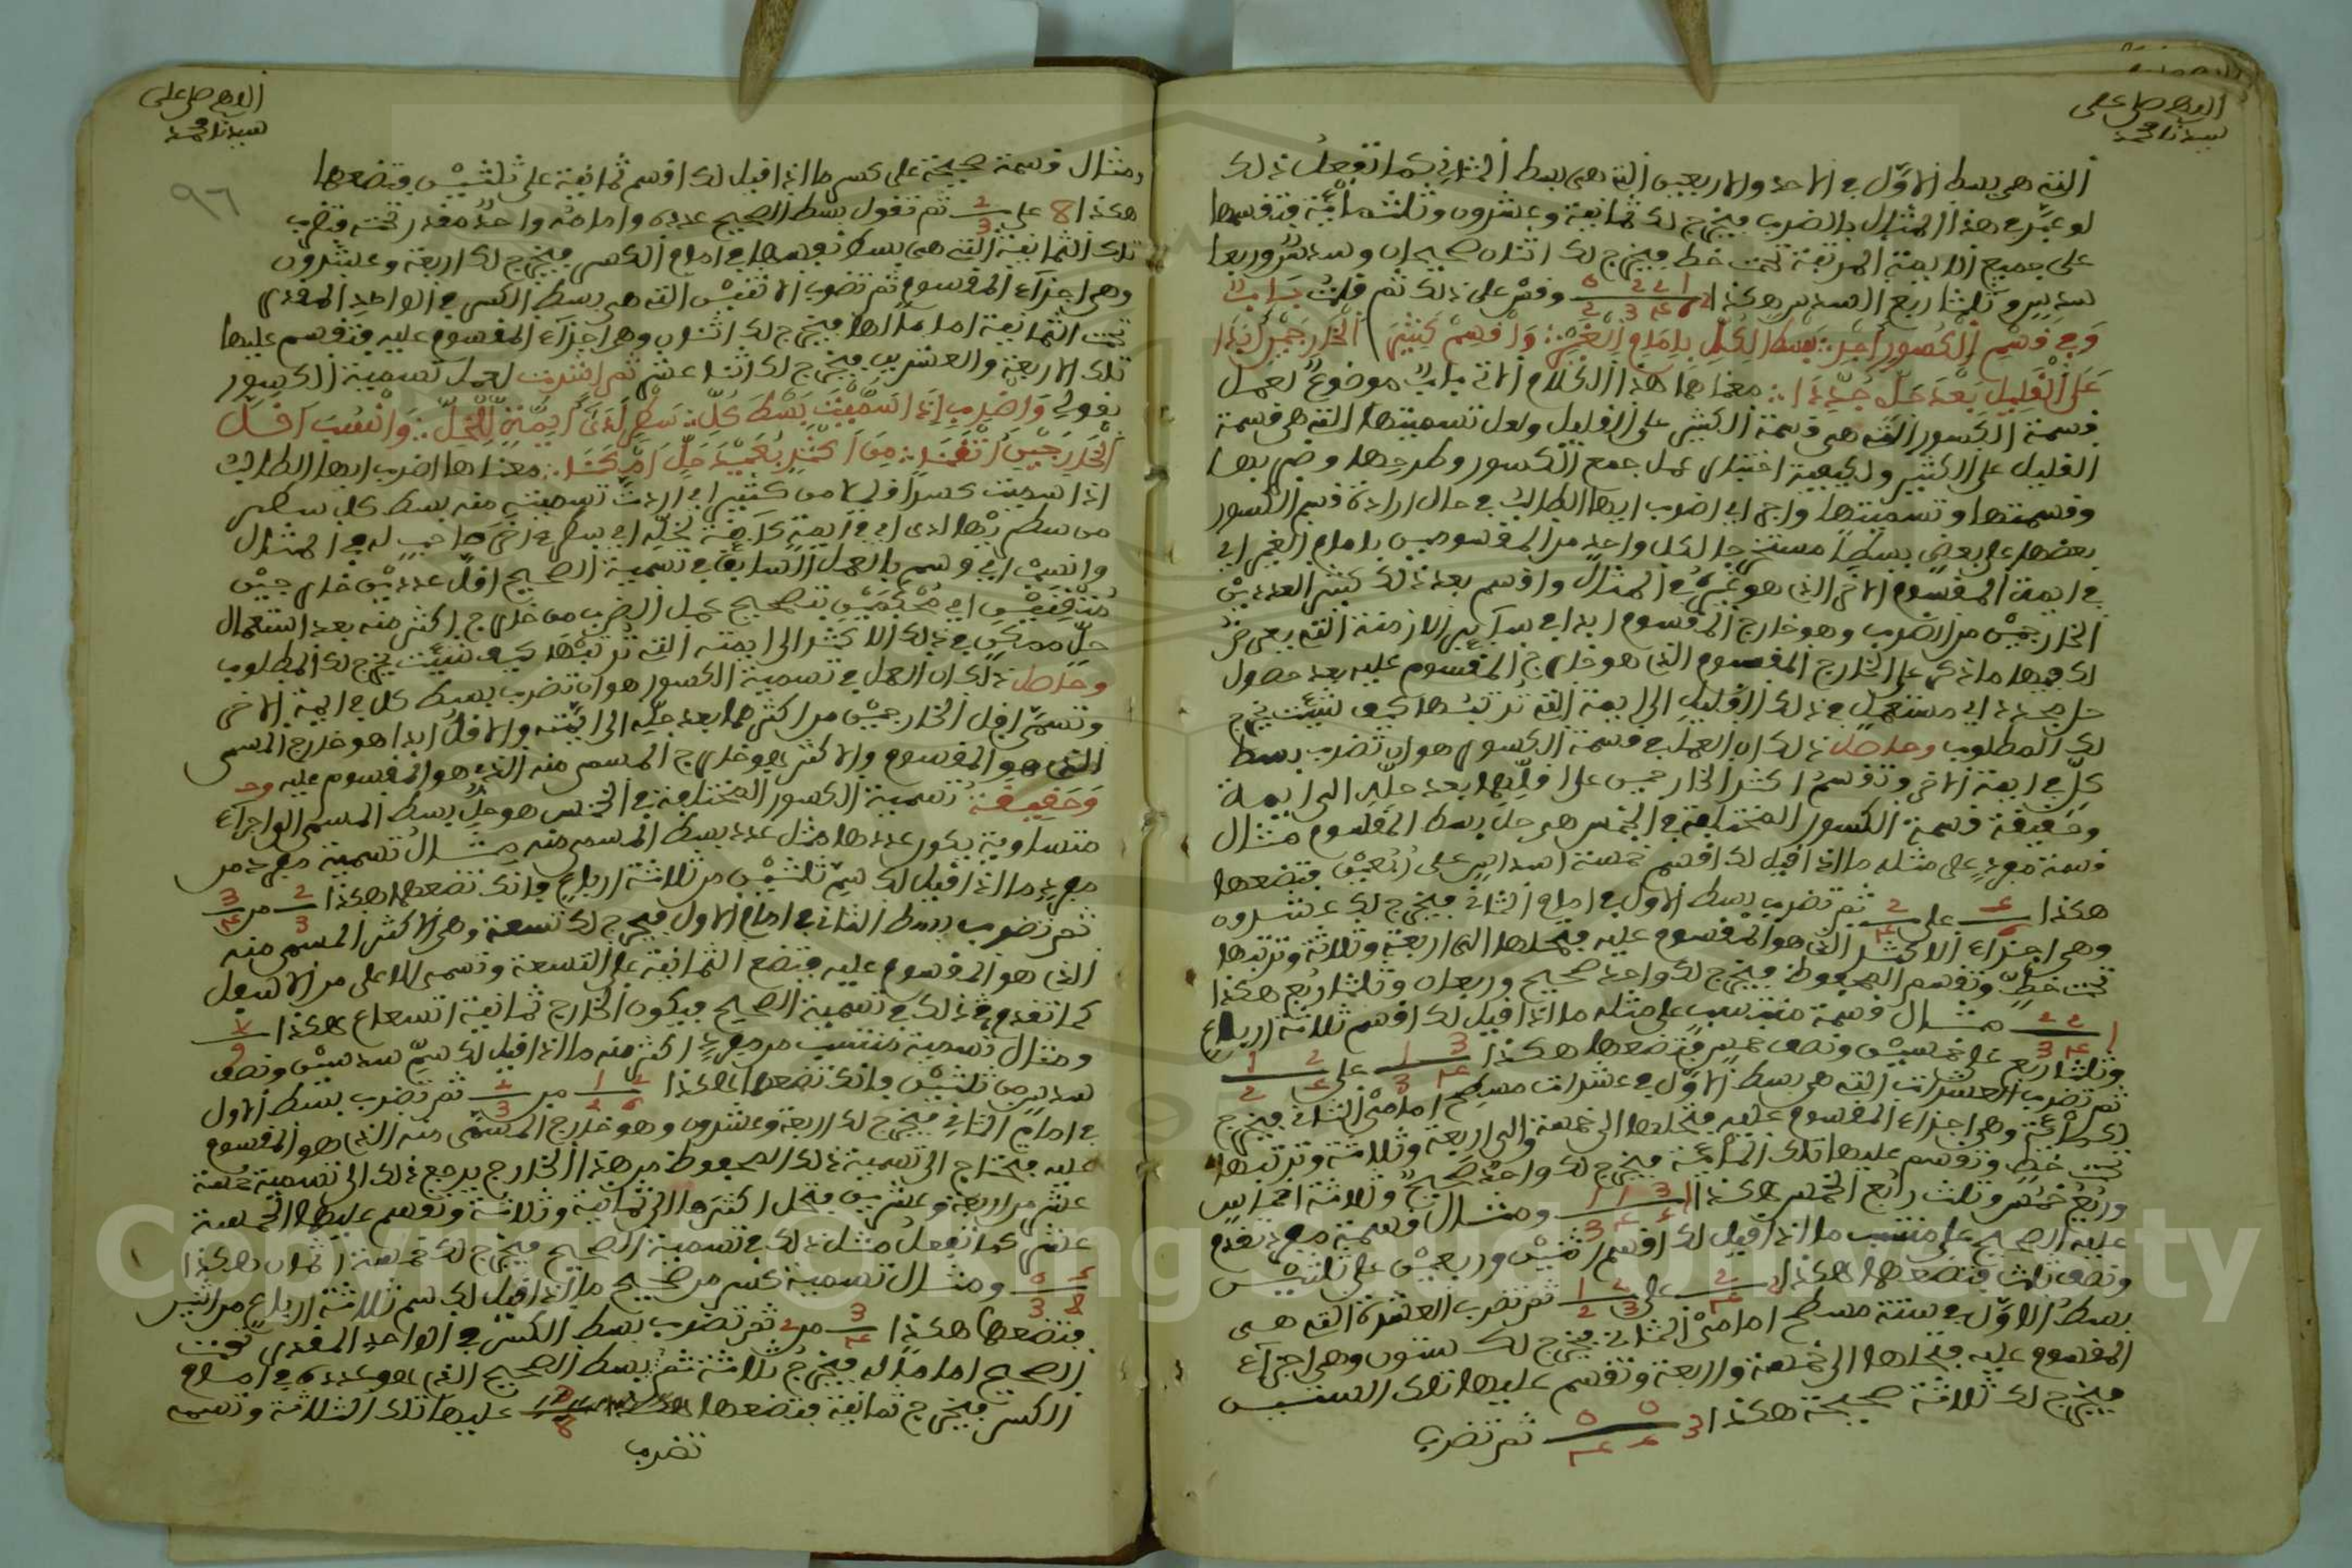 اللهم صل على
سيدنا محمد
التي هي بسط الأول في الاحد والاربعين التي هي بسط الثاني كما تفعل ذلك
لو عبر في هذا المثال بالضرب فيخرج لك ثمانية وعشرون وثلاثمائة فتقسمها
على جميع الايمة المرتبة تحت خط فيخرج لك اثنان صحيحان وسدس وربعا
سدس وثلثا ربع السدس هكذا وقس على ذلك ثم قلت باب
وفي قسم الكسور اضرب بسط الكل بامام الغير واقسم كثير الخارجين ابدا
على القليل بعد حل جددا معنا ها هذا الكلام الاتي باب موضوع لعمل
قسمة الكسور التي هي قسمة الكثير على القليل ولعل تسميتها التي هي قسمة
القليل على الكثير ولكيفية اختبار عمل جمع الكسور وطرحها وضربها
وقسمتها وتسميتها واجر اي اضرب ايها الطالب في حال ارادة قسم الكسور
بعضها على بعض بسطا مستخرجا لكل واحد من المقسومين بامام الغير اي
في ايمة المقسوم الاخر الذي هو غيره في المثال واقسم بعد ذلك كثير العددين
الخارجين من الضرب وهو خارج المقسوم ابدا اي سائر الازمنة التي يعرض
لك فيها ما ذكر على الخارج المقسوم الذي هو خارج المقسوم عليه بعد حصول
حل مجدد اي مستعمل في ذلك القليل الى الايمة التي تركبها كيف شئت يخرج
لك المطلوب وحاصل ذلك ان العمل في قسمة الكسور هو ان تضرب بسط
كل في ايمة الاخر وتقسم اكثر الخارجين على اقلهما بعد حله الى ايمة
وحقيقة قسمة الكسور المختلفة في الجنس هي حل بسط المقسوم مثال
قسمة مفرد على مثله ما اذا قيل لك اقسم خمسة اسداس على ربعين فتضعها
هكذا على ثم تضرب بسط الاول في امام الثاني فيخرج لك عشرون
وهي اجزاء الاكثر الذي هو المقسوم عليه فتحلها الى اربعة وثلاثة وترتبها
تحت خط وتقسم المحفوظ فيخرج لك واحد صحيح وربعان وثلثا ربع هكذا
مثال قسمة منتسب على مثله ما اذا قيل لك اقسم ثلاثة ارباع
وثلثا ربع على خمسين ونصف خمس فتضعها هكذا على
ثم تضرب العشرات التي هي بسط الاول في عشرات مسطح امامي الثاني فيخرج
لك مائة وهي اجزاء المقسوم عليه فتحلها الى خمسة والى اربعة وثلاثة وترتبها
تحت خط وتقسم عليها تلك المائة فيخرج لك واحد صحيح وثلاثة اخماس
وربع خمس وثلث ربع الخمس هكذا ومثال قسمة مفرد تقدم
عليه الصحيح على منتسب ما اذا قيل لك اقسم اثنين وربعين على ثلثين
ونصف ثلث فتضعها هكذا على ثم تضرب العشرة التي هي
بسط الاول في ستة مسطح امامي الثاني فيخرج لك ستون وهي اجزاء
المقسوم عليه فتحلها الى خمسة واربعة وتقسم عليها تلك الستين
فيخرج لك ثلاثة صحيحة هكذا ثم تضرب
اللهم صل على
سيدنا محمد
٩٦
ومثال قسمة صحيحة على كسر ما اذا قيل لك اقسم ثمانية على ثلثين فتضعها
هكذا 8 على 2/3 ثم تقول بسط الصحيح عدده وامامه واحد مقدر تحته فتضرب
تلك الثمانية التي هي بسط نفسها في امام الكسر فيخرج لك اربعة وعشرون
وهي اجزاء المقسوم ثم تضرب الاثنين التي هي بسط الكسر في الواحد المقدر
تحت الثمانية اماما لها فيخرج لك اثنان وهي اجزاء المقسوم عليه فتقسم عليها
تلك الاربعة والعشرين فيخرج لك اثنا عشر ثم اشرت لعمل تسمية الكسور
بقولي واضرب اذا سميت بسط كل سطر لدى ايمة للخل وانسب اقل
الخارجين اتقن من اكثر بعيد حل امكن معناها اضرب ايها الطالب
اذا سميت كسرا قليلا من كثير اي اردت تسميته منه بسط كل سطر
من سطريها لدى اي في ايمة كاينة لخله اي سطر اخر صاحب له في المثال
وانسب اي وسم بالعمل السابق في تسمية الصحيح اقل عددين خارجين
متقنين اي محكمين بتصحيح عمل الضرب من خارج اكثر منه بعد استعمال
حل ممكن في ذلك الاكثر الى ايمته التي تركبها كيف شئت يخرج لك المطلوب
وحاصل ذلك ان العمل في تسمية الكسور هو ان تضرب بسط كل في ايمة الاخر
وتسمي اقل الخارجين من اكثرهما بعد حله الى ايمته والاقل ابدا هو خارج المسمى
الذي هو المقسوم والاكثر هو خارج المسمى منه الذي هو المقسوم عليه وحد
وحقيقة تسمية الكسور المختلفة في الجنس هو حل بسط المسمى الى اجزاء
متساوية يكون عددها مثل عدد بسط المسمى منه مثال تسمية مفرد من
مفرد ما اذا قيل لك سم ثلثين من ثلاثة ارباع فانك تضعها هكذا 2/3 من
ثم تضرب بسط الثاني في امام الاول فيخرج لك تسعة وهي الاكثر المسمى منه
الذي هو المقسوم عليه فتضع الثمانية على التسعة وتسمي الاعلى من الاسفل
كما تقدم في ذلك في تسمية الصحيح فيكون الخارج ثمانية اتساع هكذا
ومثال تسمية منتسب من مفرد اكثر منه ما اذا قيل لك سم سدسين ونصف
سدس من ثلثين فانك تضعها هكذا من 2/3 ثم تضرب بسط الاول
في امام الثاني فيخرج لك اربعة وعشرون وهو خارج المسمى منه الذي هو المقسوم
عليه فتحتاج الى تسمية ذلك المحفوظ من هذا الخارج يرجع ذلك الى تسمية خمسة
عشر من اربعة وعشرين فتحل اكثرهما الى ثمانية وثلاثة وتقسم عليها الخمسة
عشر كما تفعل مثل ذلك في تسمية الصحيح فيخرج لك خمسة اثمان هكذا
ومثال تسمية كسر من صحيح ما اذا قيل لك سم ثلاثة ارباع من اثنين
فتضعها هكذا من 2 ثم تضرب بسط الكسر في الواحد المقدر تحت
الصحيح اماما له فيخرج ثلاثة ثم بسط الصحيح الذي هو عدده في امام
الكسر فيخرج ثمانية فتضعها عليها تلك الثلاثة وتسمه
تضرب